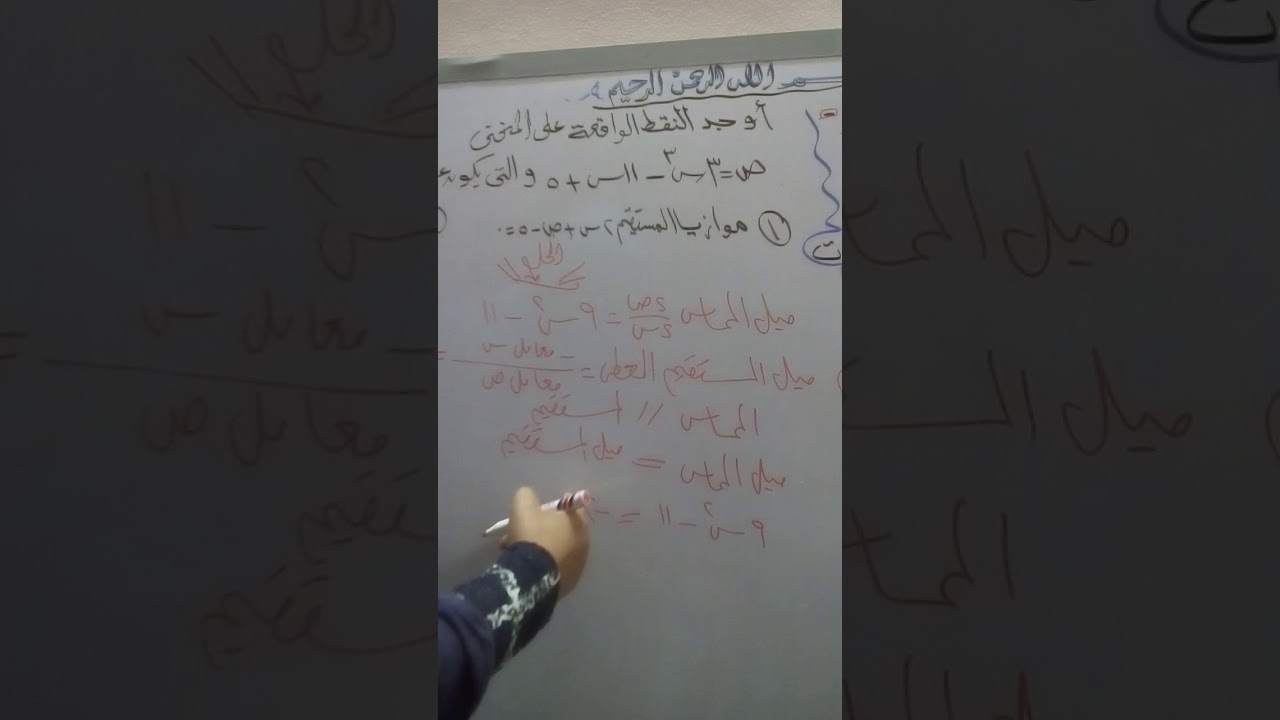 بسم الله الرحمن الرحيم
أوجد النقط الواقعة على المنحنى
ص = ٣س٣ − ١١س + ٥ والتى يكون
① موازيا المستقيم ٢س + ص − ٥ = ٠
الحل
ميل المماس = ءص/ءس = ٩س٢ − ١١
ميل المستقيم المعطى = − معامل س / معامل ص =
المماس // المستقيم
ميل المماس = ميل المستقيم
٩س٢ − ١١ = −